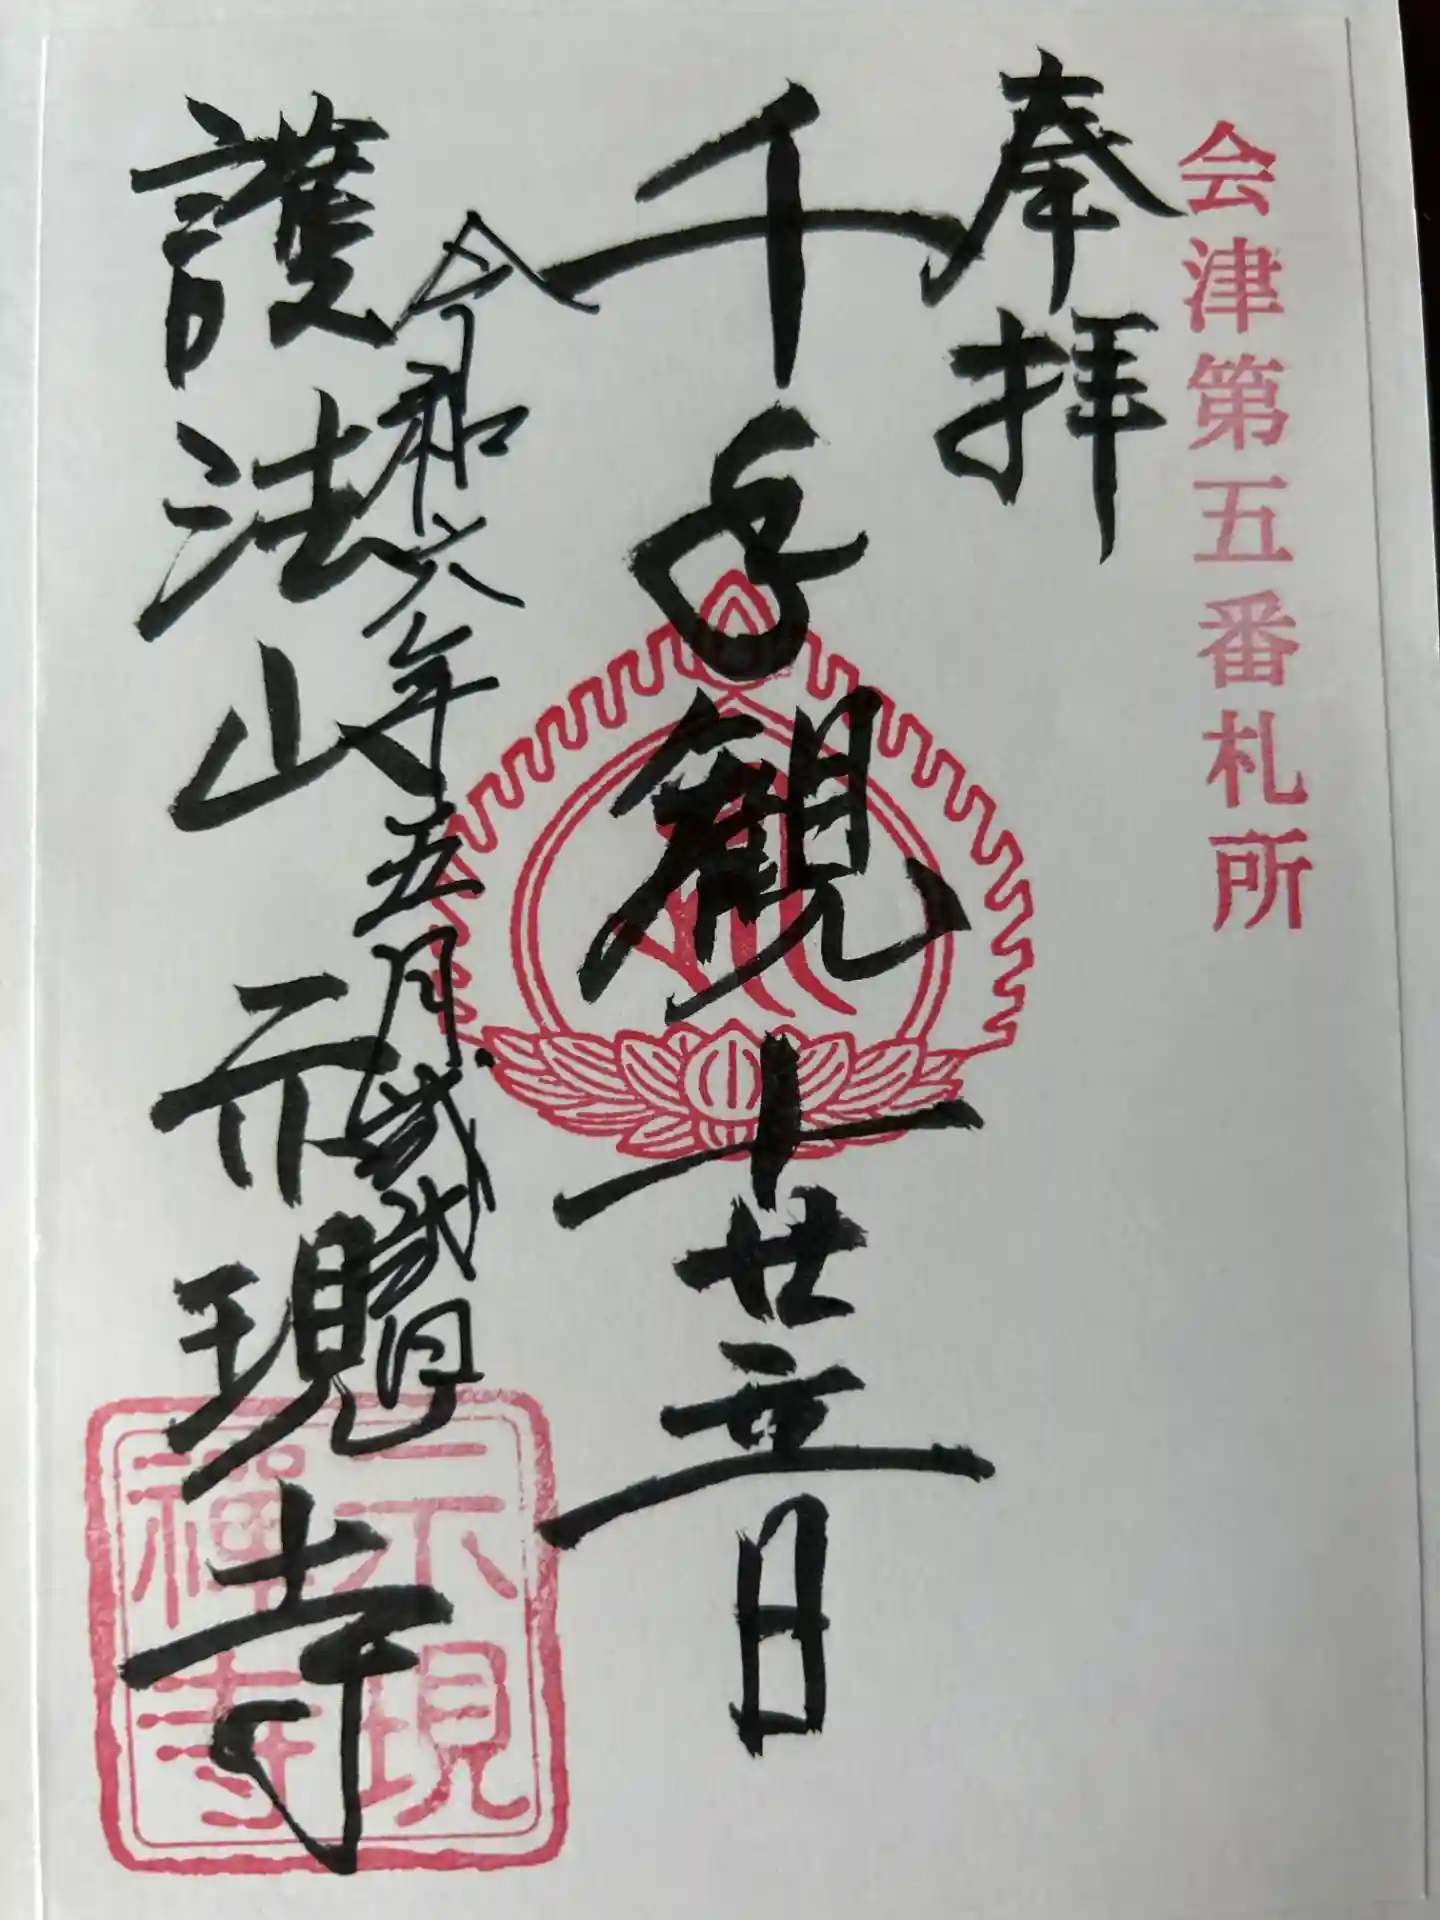 会津第五番札所
奉拝
千手観世音
令和六年五月弐弐日
護法山 示現寺
示現
禪寺